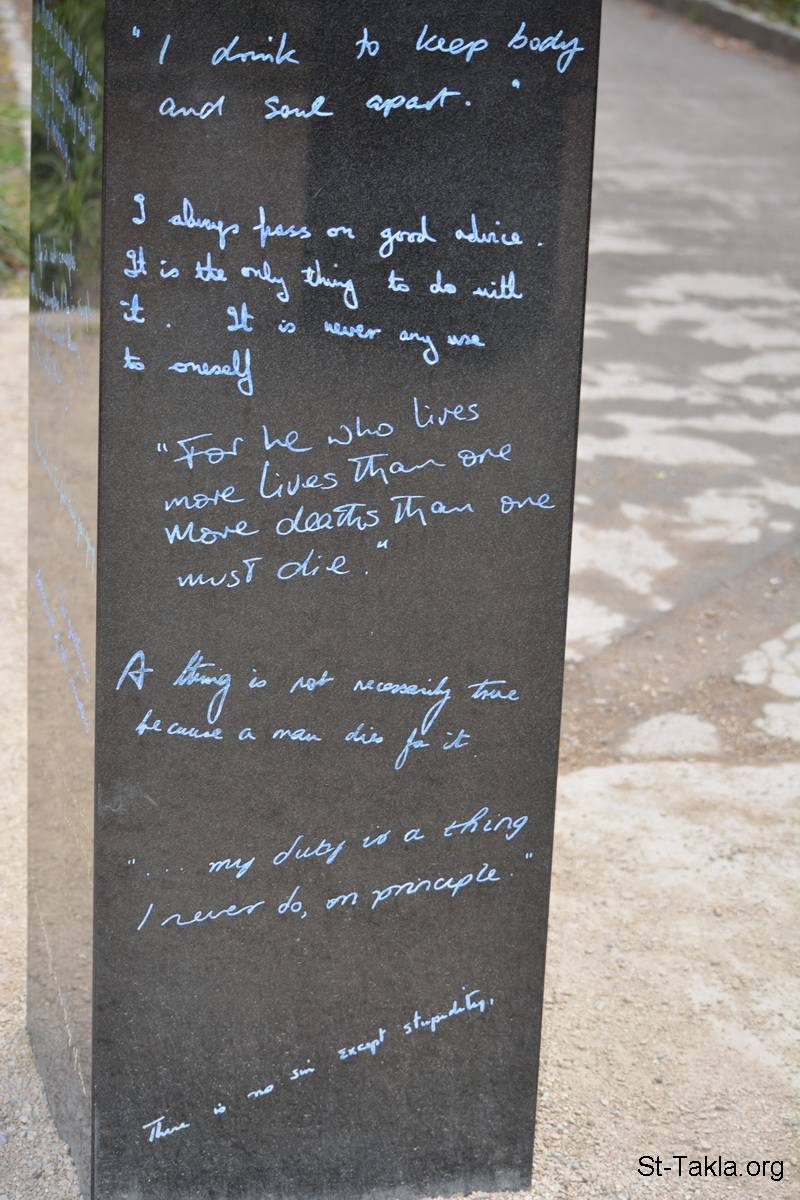 "I drink to keep body
and soul apart."
I always pass on good advice.
It is the only thing to do with
it. It is never any use
to oneself
"For he who lives
more lives Than one
More deaths Than one
must die."
A thing is not necessarily true
because a man dies for it
"... my duty is a thing
I never do, on principle."
There is no sin except stupidity.
St-Takla.org